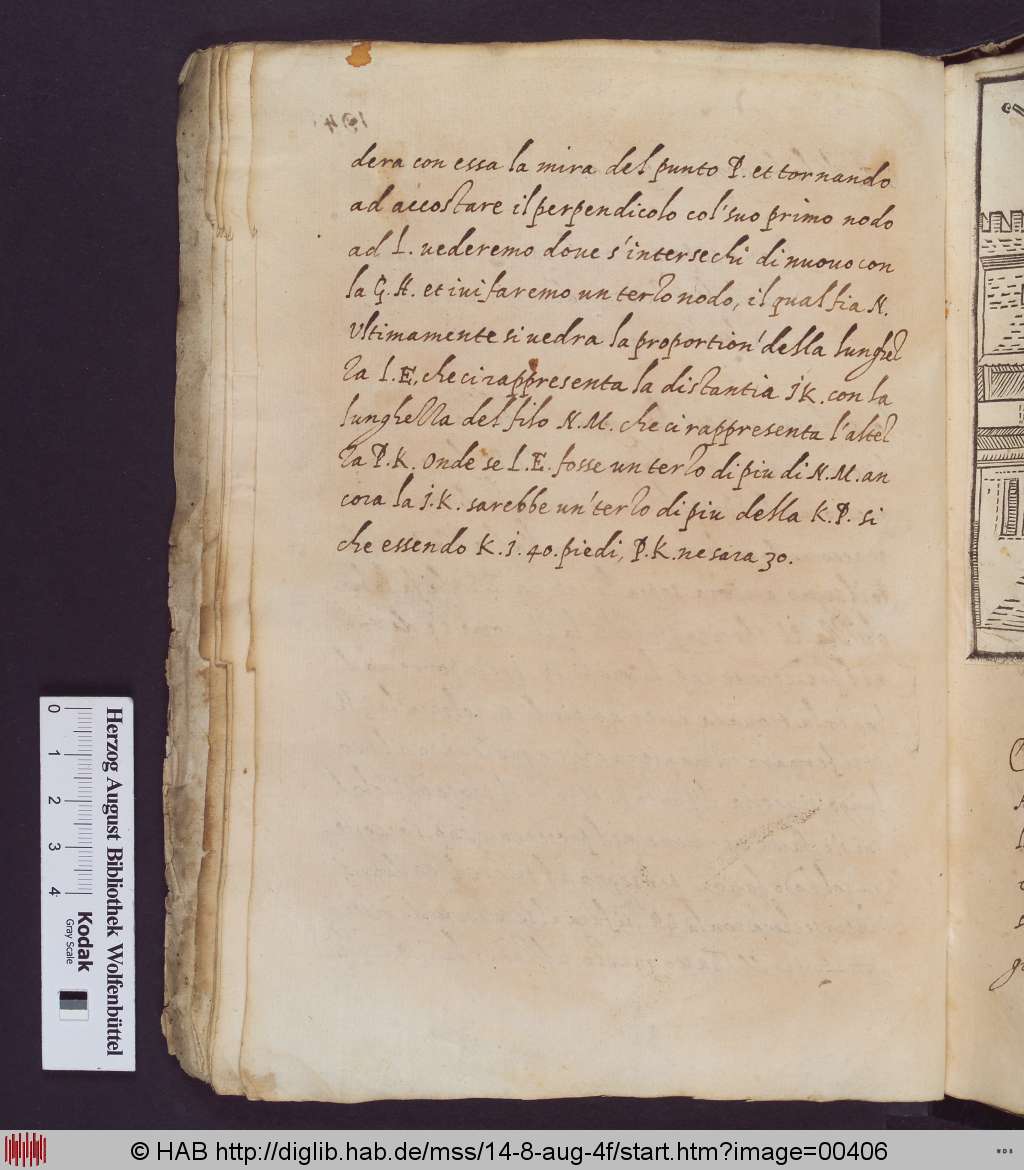 dera con essa la mira del punto P. et tornando
ad accostare il perpendicolo col' suo primo nodo
ad L. uederemo doue s'intersechi di nuouo con
la G.H. et iui faremo un terzo nodo, il qual sia N.
Vltimamente si uedra la proportion' della lunghez
za L.E, che ci rappresenta la distantia IK. con la
lunghezza del filo N.M. che ci rappresenta l'altez
za P.K. Onde se L.E. fosse un terzo di piu di N.M. an
cora la I.K. sarebbe un' terzo di piu della K.P. si
che essendo K.I. 40. piedi, P.K. ne sara 30.
0 1 2 3 4
Herzog August Bibliothek Wolfenbüttel
Kodak
Gray Scale
© HAB http://diglib.hab.de/mss/14-8-aug-4f/start.htm?image=00406